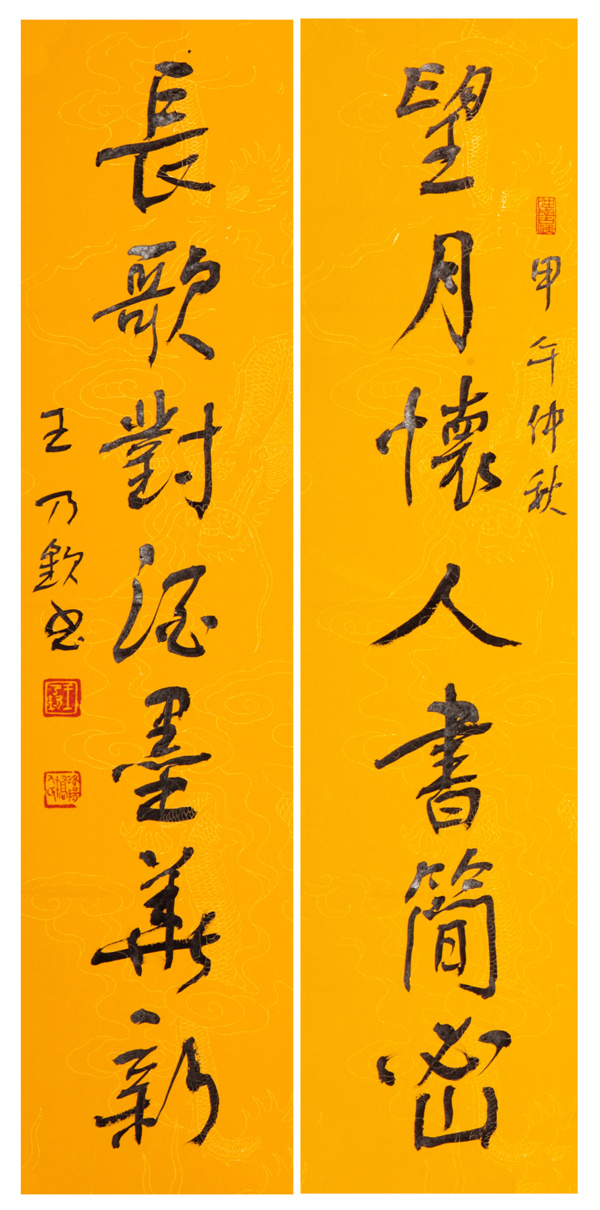 甲午仲秋
望月懷人書簡密
長歌對酒墨華新
王乃欽书